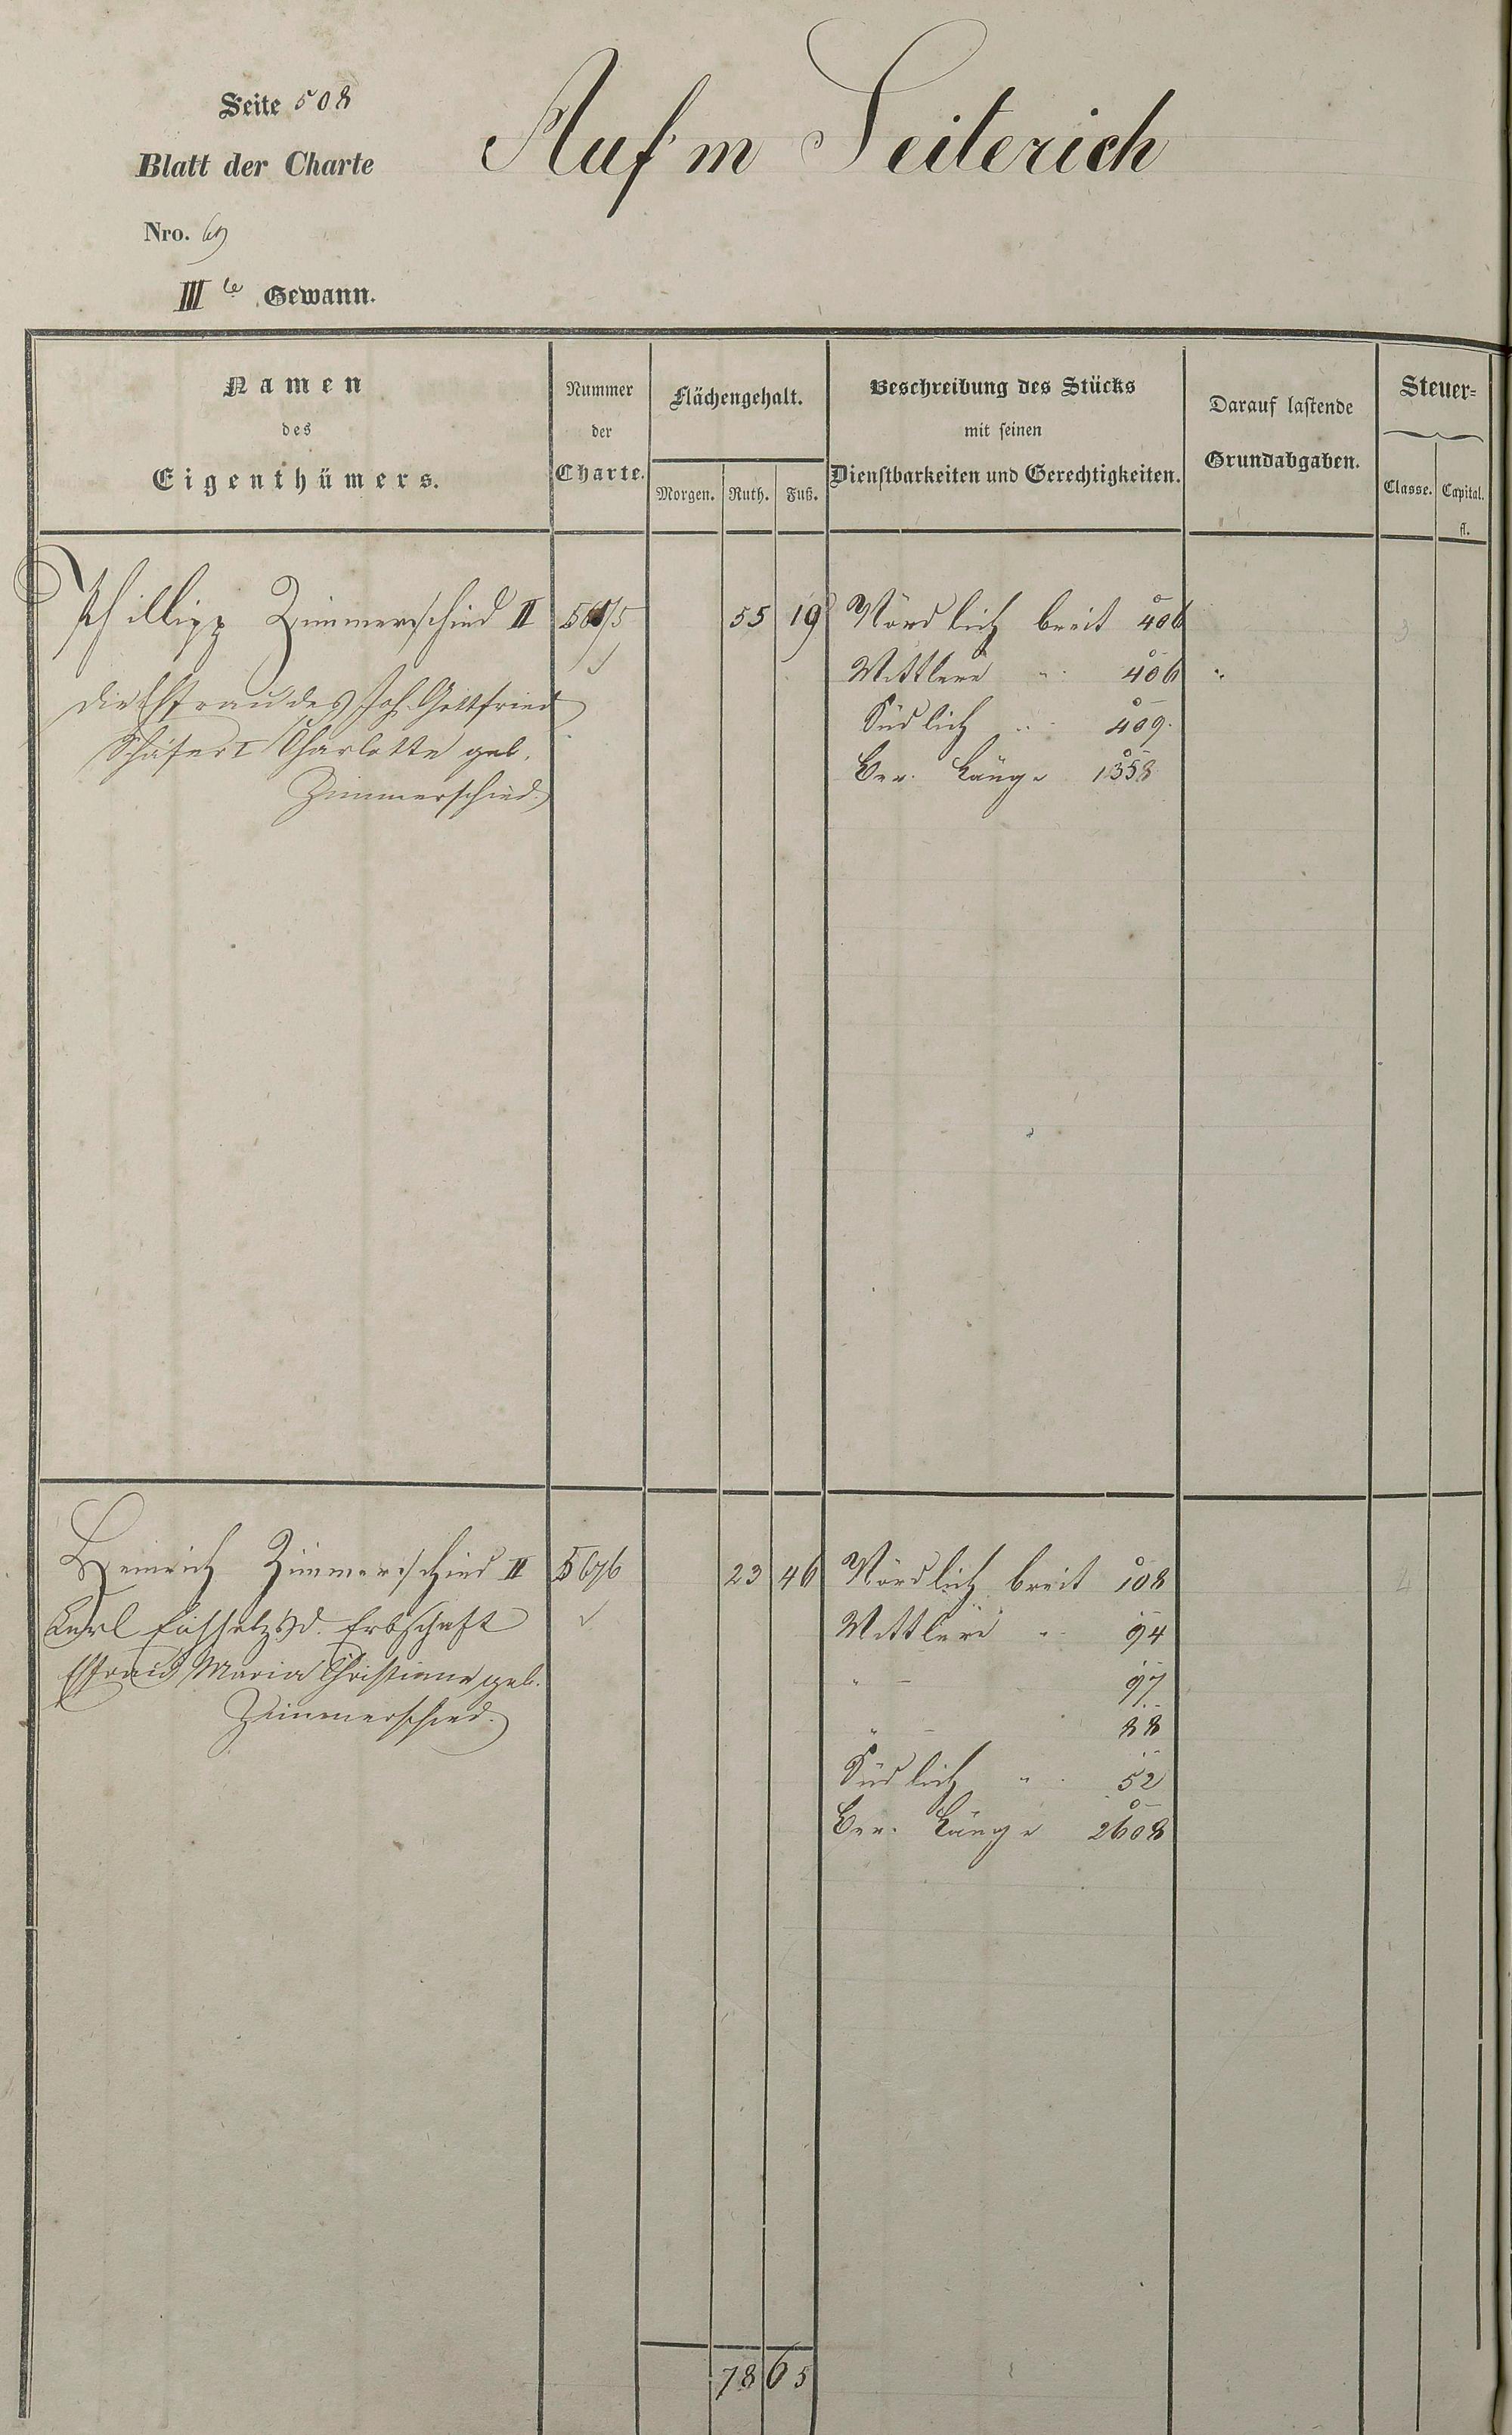 Seite 508
Auf'm Seiterich
Blatt der Charte
Nro. 69
IIIte Gewann.
Namen
des
Eigenthümers.
Nummer
der
Charte.
Flächengehalt.
Morgen. Ruth. Fuß.
Beschreibung des Stücks
mit seinen
Dienstbarkeiten und Gerechtigkeiten.
Darauf lastende
Grundabgaben.
Steuer=
Classe. Capital.
fl.
Phillipp Zimmerschied II 5675 55 19 Nördlich breit 406 3
Mittlere " 406 "
die Ehfrau des Joh. Gottfried Südlich " 409.
Schäfer I Charlotte geb. Ber. Länge 1358
Zimmerschied.
Heinrich Zimmerschied II 5676 23 46 Nördlich breit 108 4
Karl Erbschaft Mittlere " 94
Ehfrau Maria Christiane geb. " 97
Zimmerschied. " 88
Südlich " 52
Ber. Länge 2608
78 65